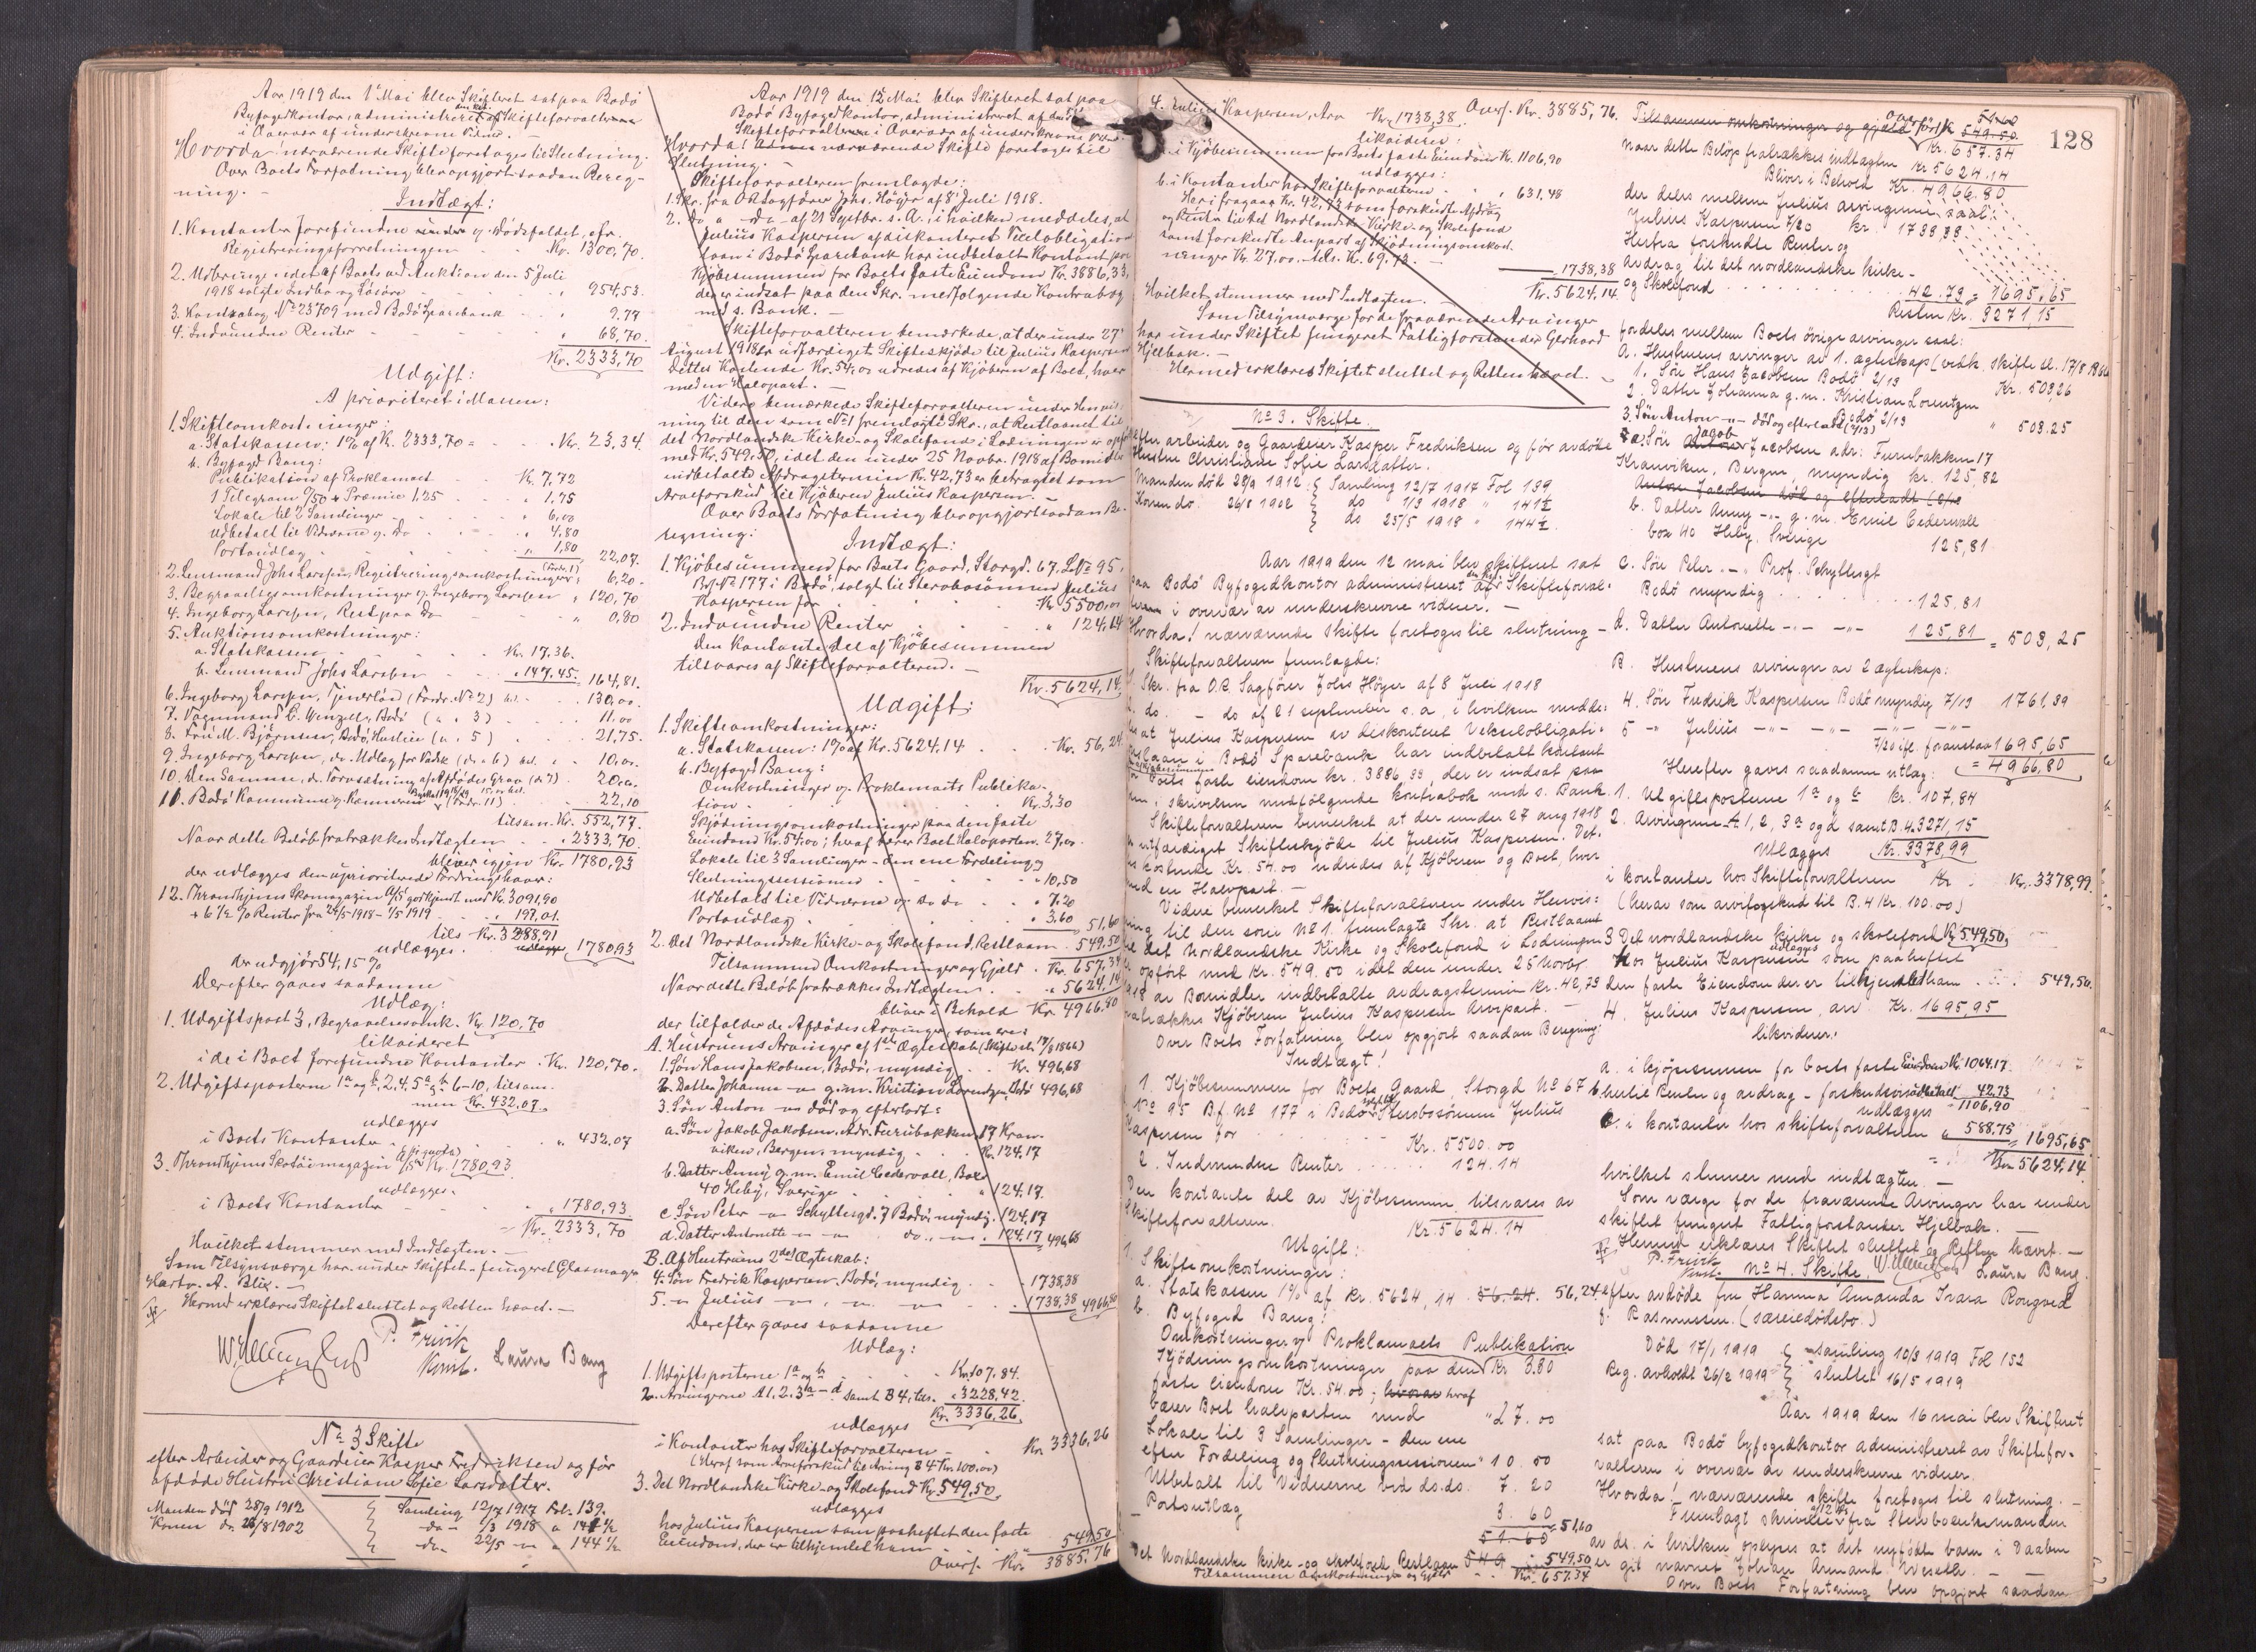 Aar 1919 den 1' Mai blev Skifteret sat paa Bodö
Byfogedkontor, administreret af den kst. Skifteforvalter
i Overvær af underskrevne Vidner. –
Hvorda! nærværende Skifte foretoges til Slutning.
Over Boets Forfatning blev opgjort saadan Bereg-
ning. –
Indtægt:
1. Kontanter forefundne ved Dödsfaldet, cfr.
Registreringsforretningen – Kr. 1300,70.
2. Udbringe idet af Boets ved Auktion den 5 Juli
1918 solgte Indbo og Lösöre – " 954,53.
3. Kontrabog No 23709 med Bodö Sparebank – " 9.77
4. Indvundne Renter – " 68,70.
Kr. 2333,70
Udgift:
A prioriteret i Massen:
1. Skifteomkostninger:
a. Statskassen: 1% af Kr. 2333,70 = Kr. 23,34.
b. Byfoged Bang:
Publikation af Proklamaet Kr. 7,72
1 Telegram 0/50 + Præmie 1,25 " 1,75
Lokale til 2 Samlinger " 6,00
Udbetalt til Vidnerne v. do " 4,80
Portoudlæg " 1,80 22,07.
2. Lensmand Johs Larssen, Registreringsomkostninger (Fordr. 1) " 6,20.
3. Begravelsesomkostninger v. Ingeborg Larssen " 120,70
4. Ingeborg Larssen, Rest paa Do " 0,80
5. Auktionsomkostninger:
a. Statskassen Kr. 17,36.
b. Lensmand Johs Larssen " 147,45. 164,81.
6. Ingeborg Larssen, Tjenerlön (Fordr. No 2) bet. 130,00.
7. Vognmand C. Wenzell, Bodö (" " 3) 11.00
8. Fru M. Björnsen, Bodö, Husleie (" " 5) 21,75.
9. Ingeborg Larssen, do Udlæg for Vask (do " 6) bet. 10,00.
10. Den Samme, do Forudsætning af Afdödes Grav (do 7) 20,00.
11. Bodö Kommune v. Kæmneren (Fordr. 11) 22,10
tilsam. Kr. 552,77.
Naar dette Belöb fratrækkes Indtægten " 2333,70.
bliver igjen Kr. 1780,93
der udlægges den uprioriterede Fordringshaver:
12. Throndhjems Skomagazin A/S godkjendt med Kr. 3091,90
+ 6 1/2 % Renter fra 24/5 1918 – 1/5 1919 " 197,01.
tils Kr. 3288,91
udlægges 1780,93
der udgjör 54,15 %
Derefter gaves saadanne
Udlæg:
1. Udgiftspost 3, Begravelsesomk. Kr. 120,70
likvideret
i de i Boet forefundne Kontanter Kr. 120,70.
2. Udgiftsposterne 1a og b, 2, 4, 5a og b, 6–10, tilsam-
men Kr. 432,07.
udlægges
i Boets Kontanter " 432,07
3. Throndhjems Skotöimagazin A/S Kr. 1780,93
udlægges.
i Boets Kontanter " 1780,93.
Kr. 2333,70
Hvilket stemmer med Indtægten. –
Som Tilsynsværge har under Skiftet fungeret Glasmager
Hartv. A. Blix. –
Hermed erklæres Skiftet sluttet og Retten hævet. –
P. Frivik
Konst. Laura Bang
No 3 Skifte
efter Arbeider og Gaardeier Kasper Fredriksen og för
afdöde Hustru Christiane Sofie Larsdatter.
Manden död 28/9 1912 Samling 12/7 1917 Fol. 139.
Konen do 26/8 1902 do – 1/3 1918 " 141 1/2
do – 22/5 – " 144 1/2
Aar 1919 den 12 Mai blev Skifteret sat paa
Bodö Byfogedkontor, administreret af den kst.
Skifteforvalter i Overvær af underskrevne Vidner.
Hvorda! nærværende Skifte foretoges til
Slutning. –
Skifteforvalteren fremlagde:
1. Skr. fra OR Sagförer Johs. Höyer af 8 Juli 1918.
2. Do " do – af 21 Septbr. s. A., i hvilken meddeles, at
Julius Kaspersen af diskonteret Vexelobligation
laan i Bodö Sparebank har indbetalt Kontant paa
Kjöbesummen for Boets faste Eiendom Kr. 3886,33,
der er indsat paa den Skr. medfölgende Kontrabog
med s. Bank. –
Skifteforvalteren bemærkede, at der under 27'
August 1918 er udfærdiget Skifteskjöde til Julius Kaspersen
Dettes Kostende Kr. 54,00 udredes af Kjöberen og Boet, hver
med en Halvpart. –
Videre bemærkede Skifteforvalteren under Henvis-
ning til den som No 1 fremlagte Skr., at Restlaanet til
det Nordlandske Kirke- og Skolefond i Lodningen er opfört
med Kr. 549,50, idet den under 25 Novbr. 1918 af Bomidler
indbetalte Afdragstermin Kr. 42,73 er betragtet som
Arveforskud til Kjöberen Julius Kaspersen. –
Over Boets Forfatning blev opgjort saadan Be-
regning:
Indtægt:
1. Kjöbesummen for Boets Gaard, Storgd. 67, L No 95,
Byf. No 177 i Bodö, solgt til Sterbosönnen Julius
Kaspersen for Kr. 5500,00
2. Indvundne Renter " 124,14
Den Kontante del af Kjöbesummen
tilsvares af Skifteforvalteren. –
Kr. 5624,14
Udgift:
1. Skifteomkostninger:
a. Statskassen: 1% af Kr. 5624,14 Kr. 56,24.
b. Byfoged Bang:
Omkostninger v. Proklamaets Publika-
tion Kr. 3,30
Skjödningsomkostninger paa den faste
Eiendom Kr. 54,00; hvoraf bærer Boet Halvparten 27,00.
Lokale til 3 Samlinger – den ene Fordeling og
Slutningssessionen " 10,50
Udbetalt til Vidnerne v. do do " 7.20
Portoudlæg " 3.60 51,60
2. Det Nordlandske Kirke- og Skolefond, Restlaan 549.50
Tilsammen Omkostninger og Gjæld Kr. 657,34
Naar dette Belöb fratrækkes Indtægten " 5624,14
bliver i Behold Kr. 4966.80
der tilfalder de Afdödes Arvinger, som ere:
A. Hustruens Arvinger af 1ste Ægteskab (Skifte sl. 17/8 1866)
1. Sön Hans Jakobsen, Bodö, myndig Kr. 496,68
2. Datter Johanna – g.m. Kristian Lorentzen, Bodö 496,68
3. Sön Anton – död og efterladt:
a. Sön Jakob Jakobsen, Adr. Furubakken 17 Kran-
viken, Bergen, myndig Kr. 124.17
b. Datter Anny g.m. Emil Cedervall, Box
40 Heby, Sverige " 124,17.
c. Sön Peter – Schyttesgd. 7 Bodö, myndig 124,17
d. Datter Antonette – – do, – 124,17 496,68
B. Af Hustruens 2det Ægteskab:
4. Sön Fredrik Kaspersen, Bodö, myndig 1738,38
5. – Julius – – – 1738,38 4966,80
Derefter gaves saadanne
Udlæg:
1. Udgiftsposterne 1a og b Kr. 107,84.
2. Arvingerne A 1, 2, 3 a – d samt B 4, tils. " 3228,42.
Kr. 3336,26
udlægges
i Kontanter hos Skifteforvalteren – Kr. 3336,26
(Heraf som Arveforskud til Arving B 4 Kr. 100.00)
3. Det Nordlandske Kirke- og Skolefond Kr. 549,50.
udlægges
hos Julius Kaspersen som paaheftet den faste
Eiendom, der er tilhjemlet ham – 549,50
Overf. Kr. 3885,76
4. Julius Kaspersen, Arv Kr. 1738,38 Overf. Kr. 3885,76.
likvideres:
a. i Kjöbesummen for Boets faste Eiendom Kr. 1106,90
udlægges:
b. i Kontanter hos Skifteforvalteren " 631,48
Heri fragaar Kr. 42,73 som forskudte Afdrag
og Rente til det Nordlandske Kirke- og Skolefond
samt forskudte Anpart af Skjödningsomkost-
ninger Kr. 27.00. Tils. Kr. 69,73. –
1738,38
Kr. 5624,14
Hvilket stemmer med Indtægten. –
Som Tilsynsværge for de fraværende Arvinger
har under Skiftet fungeret Fattigforstander Gerhard
Hjelbak. –
Hermed erklæres Skiftet sluttet og Retten hævet.
No 3. Skifte.
efter arbeider og Gaardeier Kasper Fredriksen og för avdöde
Hustru Christiane Sofie Larsdatter.
Manden död 28/9 1912 Samling 12/7 1917 Fol 139
Konen do. 26/8 1902 do 1/3 1918 " 141 1/2
do 25/5 1918 " 144 1/2
Aar 1919 den 12 mai blev skifteret sat
paa Bodö Byfogedkontor administreret af den kst. Skifteforval-
teren i overvær av underskrevne vidner. –
Hvorda! nærværende skifte foretoges til slutning –
Skifteforvalteren fremlagde:
1. Skr. fra O.R. Sagförer Johs Höyer af 8 Juli 1918
2. do. – do af 21 september s.a., i hvilken medde-
les at Julius Kaspersen av diskonteret Vekselobligati-
onslaan i Bodö Sparebank har indbetalt kontant
paa Kjöbesummen for Boets faste eiendom kr. 3886,33, der er indsat paa
en i skrivelsen medfölgende kontrabok med s. Bank
Skifteforvalteren bemerket at der under 27 aug 1918
er utfærdiget Skifteskjöde til Julius Kaspersen. Det-
tes kostende Kr. 54.00 udredes af Kjöberen og Boet, hver
med en Halvpart. –
Videre bemerket Skifteforvalteren under Henvis-
ning til den som No 1. fremlagte Skr. at Restlaanet
til det Nordlandske Kirke og Skolefond i Lodningen
er opfört med Kr. 549.50 idet den under 25 Novbr.
1918 av Bomidler indbetalte avdragstermin kr. 42,73
fratrækkes Kjöberen Julius Kaspersens Arvepart. –
Over Boets Forfatning blev opgjort saadan Beregning:
Indtægt!
1. Kjöbesummen for Boets Gaard, Storgd No 67
L. No 95 Bf. No 177 i Bodö solgt til Sterbosönnen Julius
Kaspersen for Kr. 5500.00
2. Indvundne Renter 124.14
Den kontante del av Kjöbesummen tilsvares av
Skifteforvalteren. Kr. 5624.14
Utgift:
1. Skifteomkostninger:
a. Statskassen 1% af kr. 5624,14 56.24. 56,24
b. Byfoged Bang:
Omkostninger v/ Proklamaets Publikation
Kr 3.30
Skjödningsomkostninger paa den
faste eiendom Kr. 54.00; hvorav hvoraf
bærer Boet halvparten med " 27.00
Lokale til 3 Samlinger – den ene
efter Fordeling og Slutningssessionen " 10.50
Utbetalt til Vidnerne ved do.do. 7.20
Portoutlæg 3.60
51.60 = 51,60
Det Nordlandske kirke- og skolefond Restlaan 549 549,50
Tilsammen Omkostninger og Gjæld Kr. 657.34
128
Tilsammen omkostninger og gjæld Overfört 51.60
549.50
Kr. 657.34
naar dette Belöp fratrækkes indtægten Kr 5624.14
Bliver i Behold Kr. 4966.80
der deles mellem Julius arvingerne saal:
Julius Kaspersen 7/20 kr. 1738,38
Herfra forskudte Renter og
avdrag til det nordlandske kirke-
og Skolefond 42.73 = 1695,65
Resten Kr. 3271,15
fordeles mellem Boets övrige arvinger saal:
A. Hustruens arvinger av 1. ægteskap (vedk. skifte sl. 17/8 1866
1. Sön Hans Jacobsen Bodö 2/13 Kr. 503,26
2. Datter Johanna g.m. Kristian Lorentzen
Bodö 2/13 " 503.25
3. Sön Anton – död og efterladt (2/13)
a. Sön Jacob Jacobsen adr: Furubakken 17
Kranviken, Bergen, myndig kr. 125,82
Anton Jacobsen död og efterladt (2/13
b. Datter Anny – g.m. Emil Cedervall
box 40 Heby, Sverige 125,81
c. Sön Peter – Prof. Schyttesgt
Bodö myndig 125,81
d. Datter Antonette – – 125,81 = 503,25
B. Hustruens arvinger av 2 ægteskap:
4. Sön Fredrik Kaspersen Bodö myndig 7/13 1761,39
5 – Julius – – – –
7/20 ifl. foranstaa 1695,65
= 4966,80
Herefter gaves saadanne utlæg:
1. Utgiftsposterne 1a og b kr. 107,84
2. Arvingerne A 1, 2, 3a og d samt B. 4. 3271,15
Utlægges Kr. 3378,99
i kontanter hos Skifteforvalteren Kr. 3378,99.
(herav som arveforskud til B. 4 Kr. 100.00)
3 Det nordlandske kirke og skolefond Kr. 549,50,
udlægges
Hos Julius Kaspersen som paaheftet
den faste Eiendom der er tilhjemlet ham 549,50.
4. Julius Kaspersen, arv Kr. 1695,95
likvideres:
a. i kjöpesummen for boets faste Eiendom Kr. 1064.17
b. hertil Renter og avdrag – forskudsvis utbetalt 42.73
1106,90
udlægges
c. i kontanter hos skifteforvalteren " 588,75 = 1695,65
Kr. 5624,14
hvilket stemmer med indtægten. –
Som værge for de fraværende Arvinger har under
skiftet fungert Fattigforstander Hjelbak. –
Hermed erklæres Skiftet sluttet og Retten hævet. –
P. Frivik
Konst. Laura Bang.
No 4. Skifte.
efter avdöde fru Hanna Amanda Ivara Rongved
f. Rasmussen. (særeiedödsbo.)
Död 17/1 1919 samling 10/3 1919 Fol 152
Reg. avholdt 26/2 1919 sluttet 16/5 1919
Aar 1919 den 16 mai blev Skifteret
sat paa Bodö byfogedkontor administreret av Skiftefor-
valteren i overvær av underskrevne vidner.
Hvorda! nærværende skifte foretoges til slutning. –
Fremlagt skrivelse fra Sterboenkemanden
av ds. i hvilken oplyses at det nyfödte barn i Daaben
er git navnet Johan Armand Weseth. –
Over Boets Forfatning blev opgjort saadan